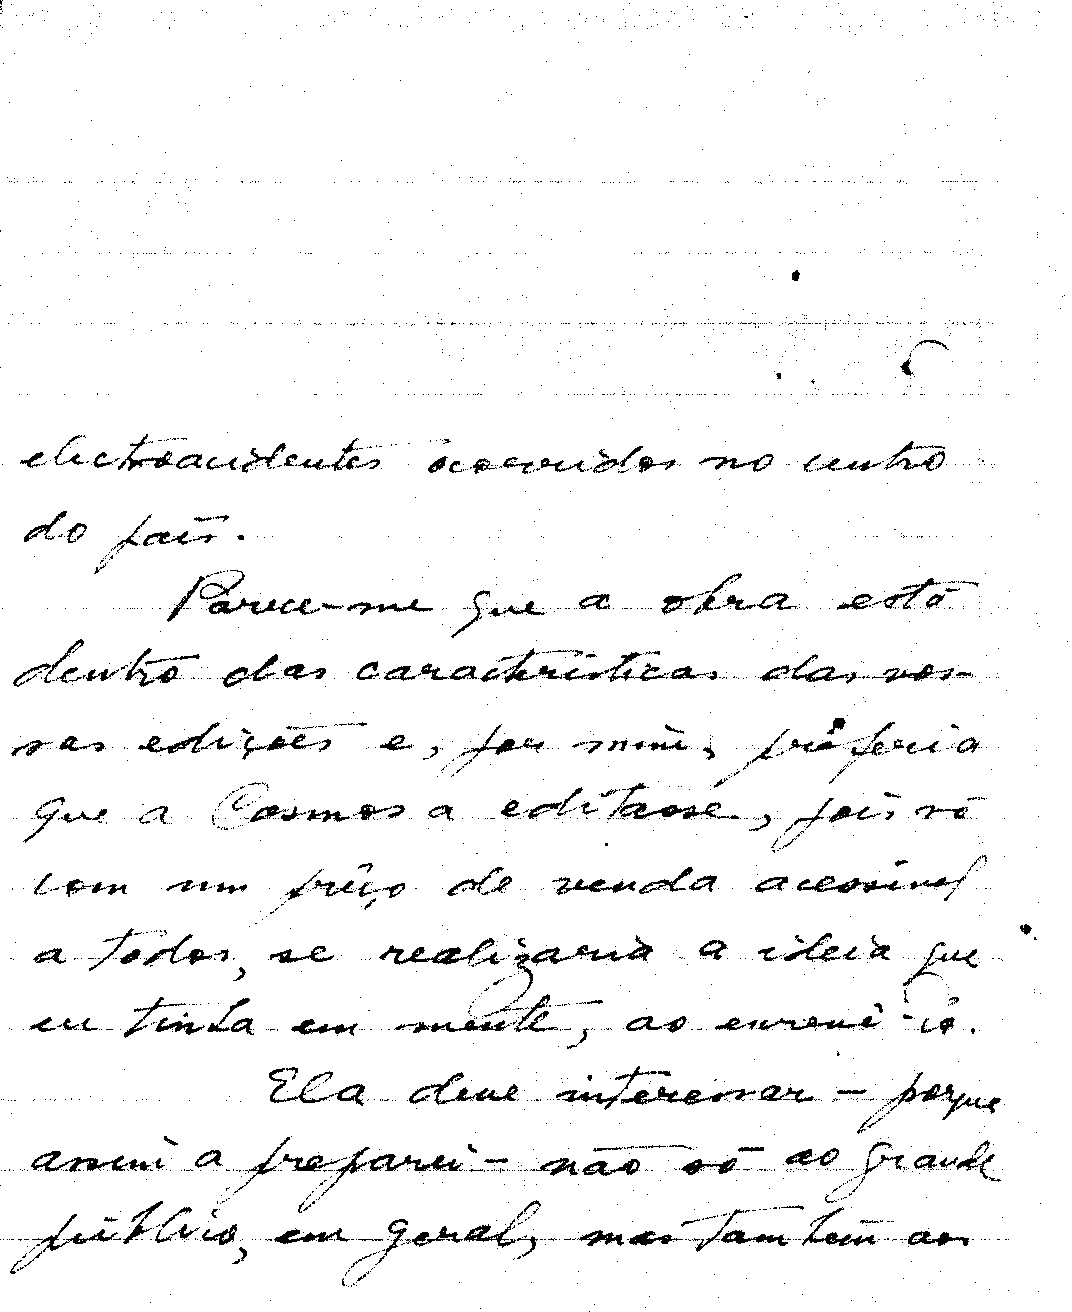 electroacidentes ocorridos no centro
do país.
Parece-me que a obra está
dentro das características das vos-
sas edições e, por mim, preferia
que a Cosmos a editasse, pois só
com um prêço de venda acessivel
a todos, se realizaria a ideia que
eu tinha em mente, ao
Ela deve interessar - porque
assim a preparei - não só ao grande
público, em geral, mas tambêm aos